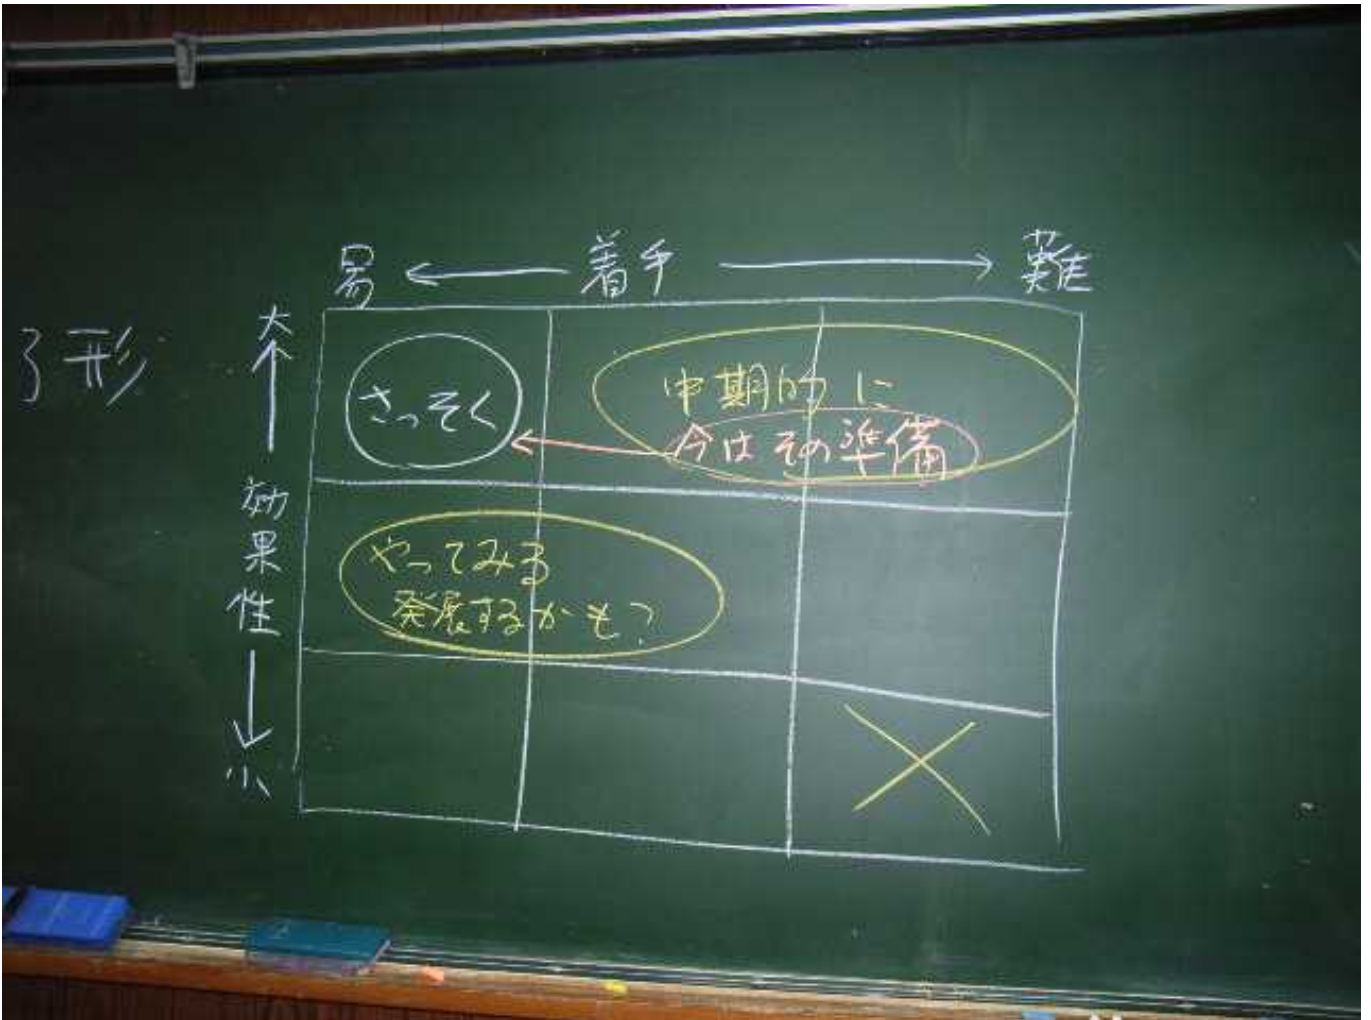 易 ← 着手 → 難
大
↑
効果性
↓
小
さっそく
中期的に
今はその準備
やってみる
発展するかも?
形